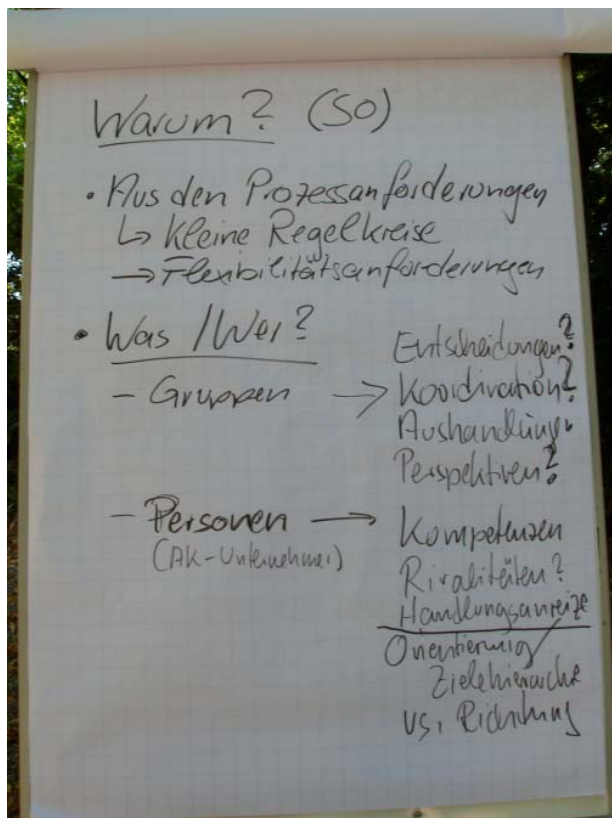 Warum? (So)
• Aus den Prozessanforderungen
↳ Kleine Regelkreise
→ Flexibilitätsanforderungen
• Was / Wer?
- Gruppen → Entscheidungen?
Koordination?
Aushandlung
Perspektiven?
- Personen → Kompetenzen
(AK-Unternehmer)
Rivalitäten?
Handlungsanreize
Orientierung
Zielehierarchie
vs.